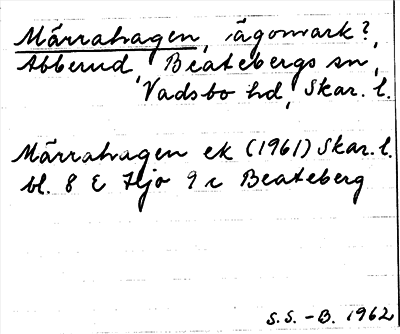 Märrahagen, ägomark?,
Abberud, Beatebergs sn,
Vadsbo hd, Skar. l.
Märrahagen ek (1961) Skar. l.
bl. 8 E Hjo 9 c Beateberg
S.S. - B. 1962